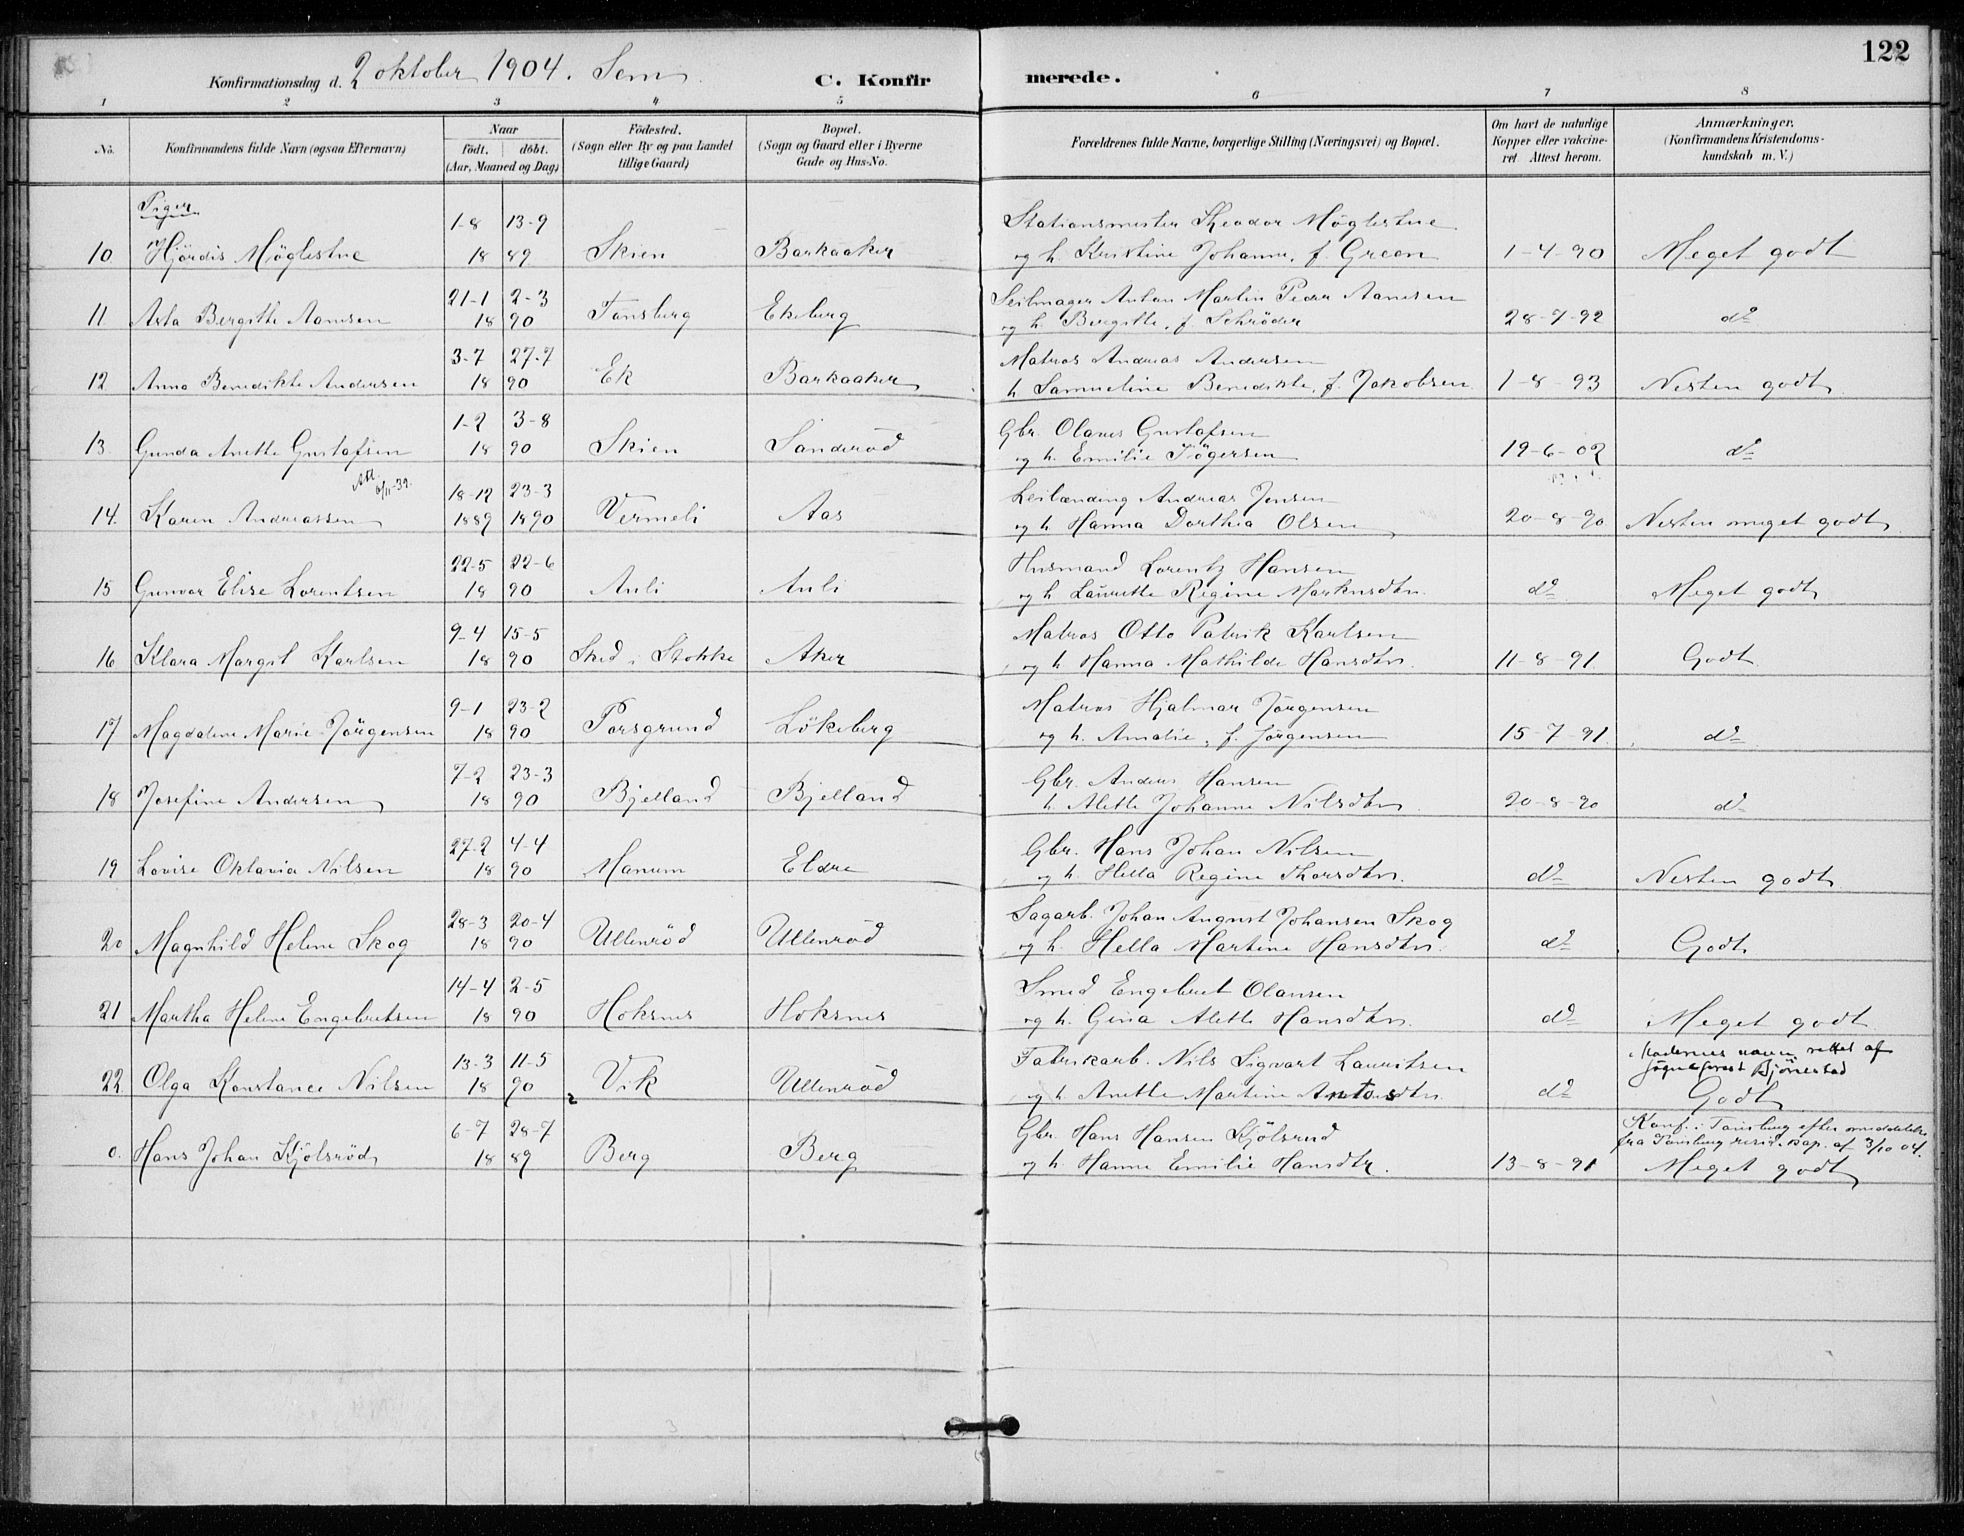 122
Konfirmationsdag d. 2 oktober 1904. Sem C. Konfirmerede.
1 2 3 4 5 6 7 8
No. Konfirmandens fulde Navn (ogsaa Efternavn) Naar født. døbt. (Aar, Maaned og Dag) Fødested. (Sogn eller By og paa Landet tillige Gaard) Bopæl. (Sogn og Gaard eller i Byerne Gade og Hus-No. Forældrenes fulde Navne, borgerlige Stilling (Næringsvei) og Bopæl. Om havt de naturlige Kopper eller vakcineret Attest herom. Anmærkninger. (Konfirmandens Kristendomskundskab m. V.)
Piger
1-8 13-9 Stationsmester Theodor Møglestue
10 Hjördis Møglestue 18 89 Skien Barkaaker og h. Kristine Johanne, f. Green 1-4-90 Meget godt
21-1 2-3 Seilmager Anton Martin Peder Aamesen
11 Asta Bergitte Aamesen 18 90 Tønsberg Ekeberg og h. Bergitte, f. Schrøder 28-7-92 do
3-7 27-7 Matros Andreas Andersen
12 Anna Benedikte Andersen 18 90 Ek Barkaaker h. Samueline Benedikte, f. Jakobsen 1-8-93 Nesten godt
1-2 3-8 Gbr. Olaves Gustafsen
13. Gunda Anette Gustafsen 18 90 Skien Sanderød og h. Emilie Jögersen 19-6-02 do
Att. 6/11-39. 18-12 23-3 Leilænding Andreas Jensen
14. Karen Andreassen 1889 1890 Vermeli Aas og h. Hanna Dorthea Olsen 20-8-90 Nesten meget godt
22-5 22-6 Husmand Lorentz Hansen
15 Gunvor Elise Lorentsen 18 90 Auli Auli og h. Laurette Regine Markusdtr. do Meget godt
9-4 15-5 Matros Otto Patrik Karlsen
16 Klara Margit Karlsen 18 90 Sked i Stokke Aker og h. Hanna Mathilde Hansdtr. 11-8-91. Godt
9-1 23-2 Matros Hjalmar Jørgensen
17 Magdalene Marie Jørgensen 18 90 Porsgrund Lökeberg og h. Amalie, f. Jørgensen 15-7-91 do
7-2 23-3 Gbr. Anders Hansen
18 Josefine Andersen 18 90 Bjelland Bjelland h. Alette Johanne Nilsdtr. 20-8-90 do
27-2 4-4 Gbr. Hans Johan Nilsen
19 Lovise Oktavia Nilsen 18 90 Manum Eldre og h. Hella Regine Thorsdtr. do Nesten godt
28-3 20-4 Sagarb. Johan August Johansen Skog
20 Magnhild Helene Skog 18 90 Ullenrød Ullenrød og h. Hella Martine Hansdtr. do Godt
14-4 2-5 Smed Engebret Olausen
21 Martha Helene Engebretsen 18 90 Hoksnes Hoksnes og h. Gina Alette Hansdtr. do Meget godt
13-3 11-5 Fabrikarb. Nils Sigvart Lauritsen Moderens navn rettet af
Sogneprest Bjönnestad
22. Olga Konstance Nilsen 18 90 Vik Ullenrød og h. Anette Martine Antosdtr. do Godt
6-7 28-7 Gbr. Hans Hansen Kjölsrud Konf. i Tønsberg efter meddelelse
fra Tønsberg resid. Kap. af 3/10 04.
0. Hans Johan Kjölsrød 18 89 Berg Berg og h. Hanne Emilie Hansdtr. 13-8-91 Meget godt